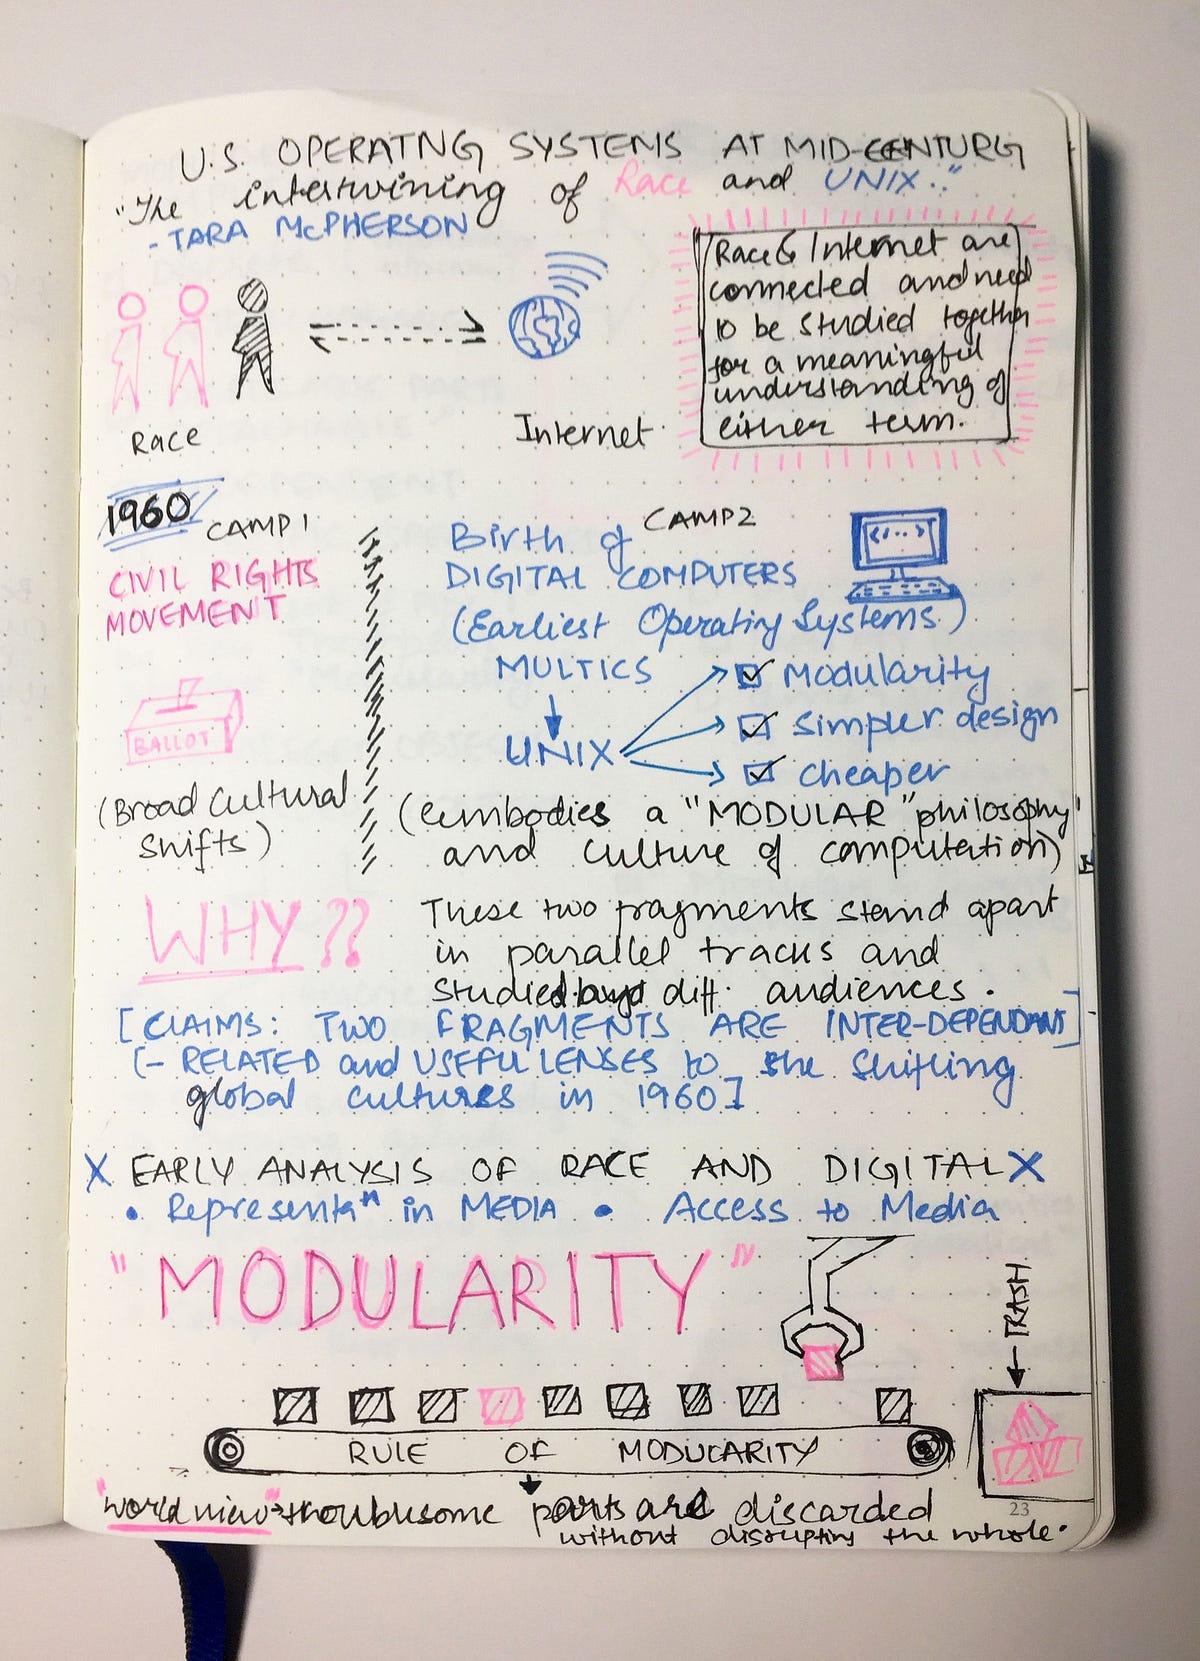 U.S. OPERATNG SYSTEMS AT MID-CENTURG
"The intertwining of Race and UNIX.."
- TARA McPHERSON
Race & Internet are
connected and need
to be studied together
for a meaningful
understanding of
either term.
Race
Internet
1960
CAMP 1
CIVIL RIGHTS
MOVEMENT
BALLOT
(Broad Cultural
Shifts)
CAMP 2
Birth of
DIGITAL COMPUTERS
(Earliest Operating Systems)
<...>
MULTICS
UNIX
Modularity
Simpler design
cheaper
(embodies a "MODULAR" philosophy
and culture of computation)
WHY??
These two fragments stand apart
in parallel tracks and
studied by diff. audiences.
[CLAIMS: TWO FRAGMENTS ARE INTER-DEPENDANT]
[- RELATED and USEFUL LENSES to the shifting
global cultures in 1960]
X EARLY ANALYSIS OF RACE AND DIGITAL X
• Representatn in MEDIA • Access to Media
"MODULARITY"
TRASH
RULE OF MODULARITY
"world view" troublesome parts are discarded
without disrupting the whole.
23